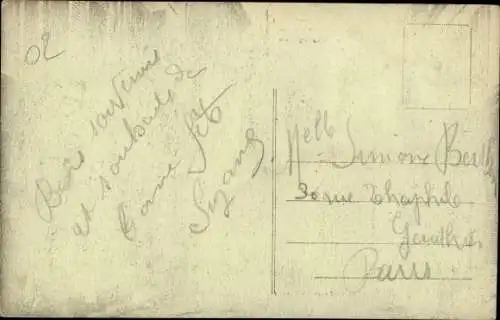 02
Bons souvenirs
et souhaits de
bonne fête
Suzanne
Melle
Simone Berth
30 rue Théophile
Gauthier
Paris